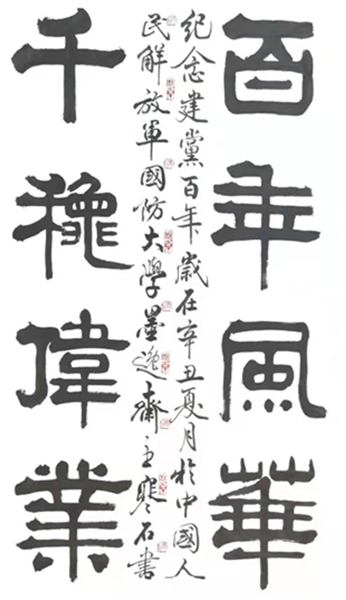 百年風華
紀念建黨百年歲在辛丑夏月於中國人
民解放軍國防大學墨逸齋主寒石書
千穐偉業